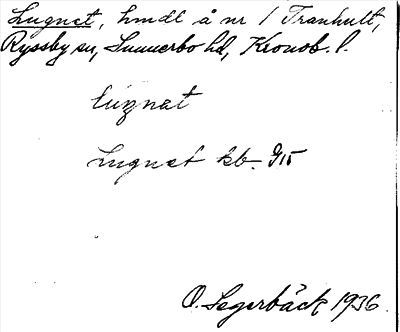 Lugnet, hmdl å nr 1 Tranhult,
Ryssby sn, Sunnerbo hd, Kronob. l.
Lugnet kb. 915
O. Segerbäck 1936